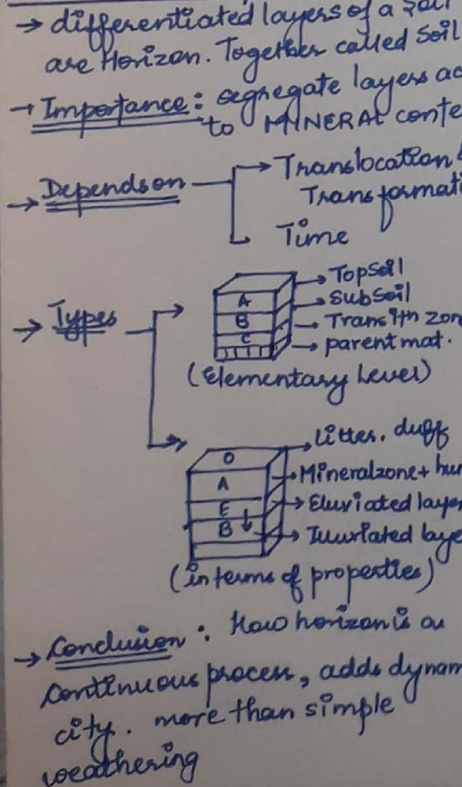 → differentiated layers of a Soil
are Horizon. Together called Soil
→ Importance: segregate layers ac
to MINERAL conte
→ Depends on → Translocation
Transformati
Time
→ Types
→ Topsoil
A → Subsoil
B → Transitn zon
C → parent mat.
(Elementary Level)
O → Litter, duff
A → Mineralzone + hu
E → Eluviated layer
B → Illuviated laye
(in terms of properties)
→ Conclusion: How horizon is a
continuous process, adds dynam
city. more than simple
weathering